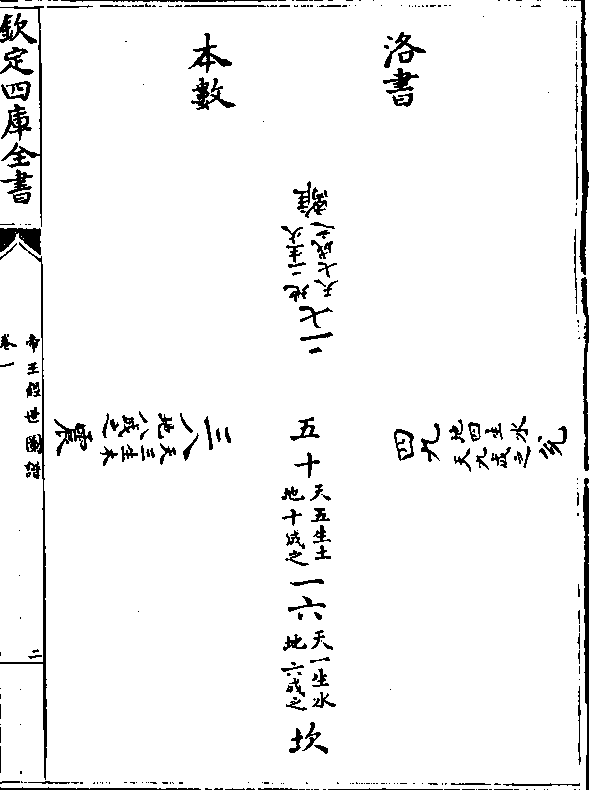 洛書
本數
二七
地二生火
天七成之
離
四九
地四生水
天九成之
兌
五十
天五生土
地十成之
三八
天三生木
地八成之
震
一六
天一生水
地六成之
坎
欽定四庫全書
帝王經世圖譜
卷一
二